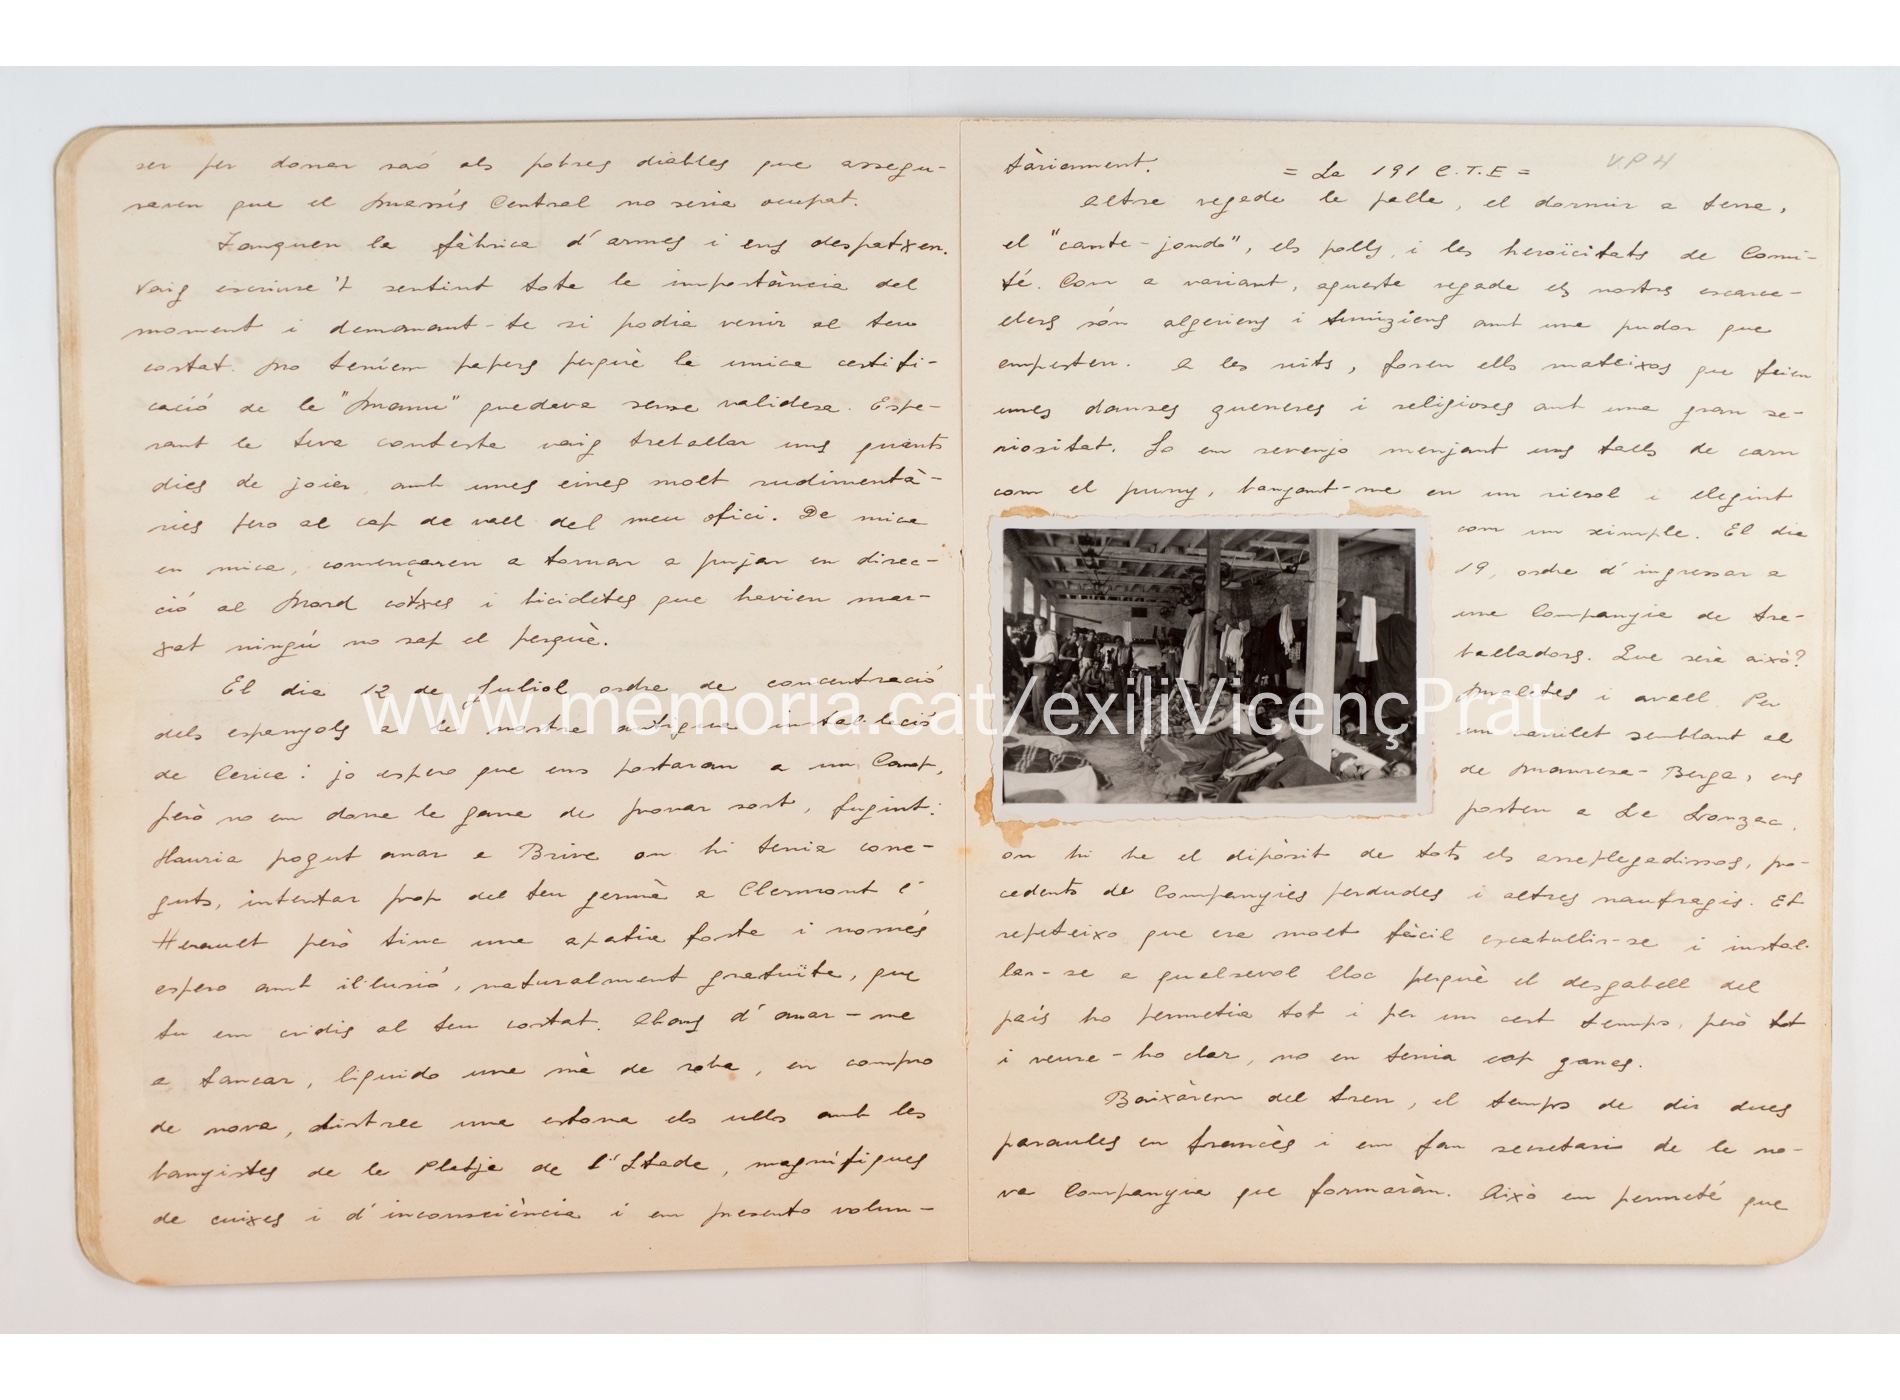 ser per donar raó als pobres diables que assegu-
raven que el Massís Central no seria ocupat.
Tanquen la fàbrica d'armes i ens despatxen.
Vaig escriure't sentint tota la importància del
moment i demanant-te si podia venir al teu
costat. No teníem papers perquè la unica certifi-
cació de la "Manu" quedava sense validesa. Espe-
rant la teva contesta vaig treballar uns quants
dies de joier, amb unes eines molt rudimentà-
ries pero al cap de vall del meu ofici. De mica
en mica, començaren a tornar a pujar en direc-
ció al Nord cotxes i bicicletes que havien mar-
xat ningú no sap el perquè.
El dia 12 de Juliol ordre de concentració
dels espanyols a la nostra antigua instal·lació
de Cerice: jo espero que ens portaran a un Camp,
però no em dona la gana de provar sort, fugint:
Hauria pogut anar a Brive on hi tenia cone-
guts, intentar prop del teu germà a Clermont l'
Herault però tinc una apatia forta i només
espero amb il·lusió, naturalment gratuïta, que
tu em cridis al teu costat. Abans d'anar-me
a tancar, liquido una mà de roba, en compro
de nova, distrec una estona els ulls amb les
banyistes de la Platja de l'Stade, magnífiques
de cuixes i d'inconsciència i em presento volun-
tàriament.
V.P 4
= La 191 C.T.E =
Altra vegada la palla, el dormir a terra,
el "cante-jondo", els polls, i les heroïcitats de Comi-
té. Com a variant, aquesta vegada els nostres escarce-
llers són algeriens i tuniziens amb una pudor que
empesten. A les nits, foren ells mateixos que feien
unes danses guerreres i religioses amb una gran se-
riositat. Jo em revenjo menjant uns talls de carn
com el puny, banyant-me en un rierol i llegint
com un ximple. El dia
19, ordre d'ingressar a
una Companyia de tre-
balladors. Que serà això?
Maletes i avall. Per
un carrilet semblant al
de Manresa-Berga, ens
porten a Le Lonzac,
on hi ha el dipòsit de tots els arreplegadissos, pro-
cedents de Companyies perdudes i altres naufragis. Et
repeteixo que era molt fàcil escabullir-se i instal·
lar-se a qualsevol lloc perquè el desgabell del
país ho permetia tot i per un cert temps, però tot
i veure-ho clar, no en tenia cap ganes.
Baixàrem del tren, el temps de dir dues
paraules en francès i em fan secretari de la no-
va Companyia que formaràn. Això em permeté que
www.memoria.cat/exiliVicençPrat